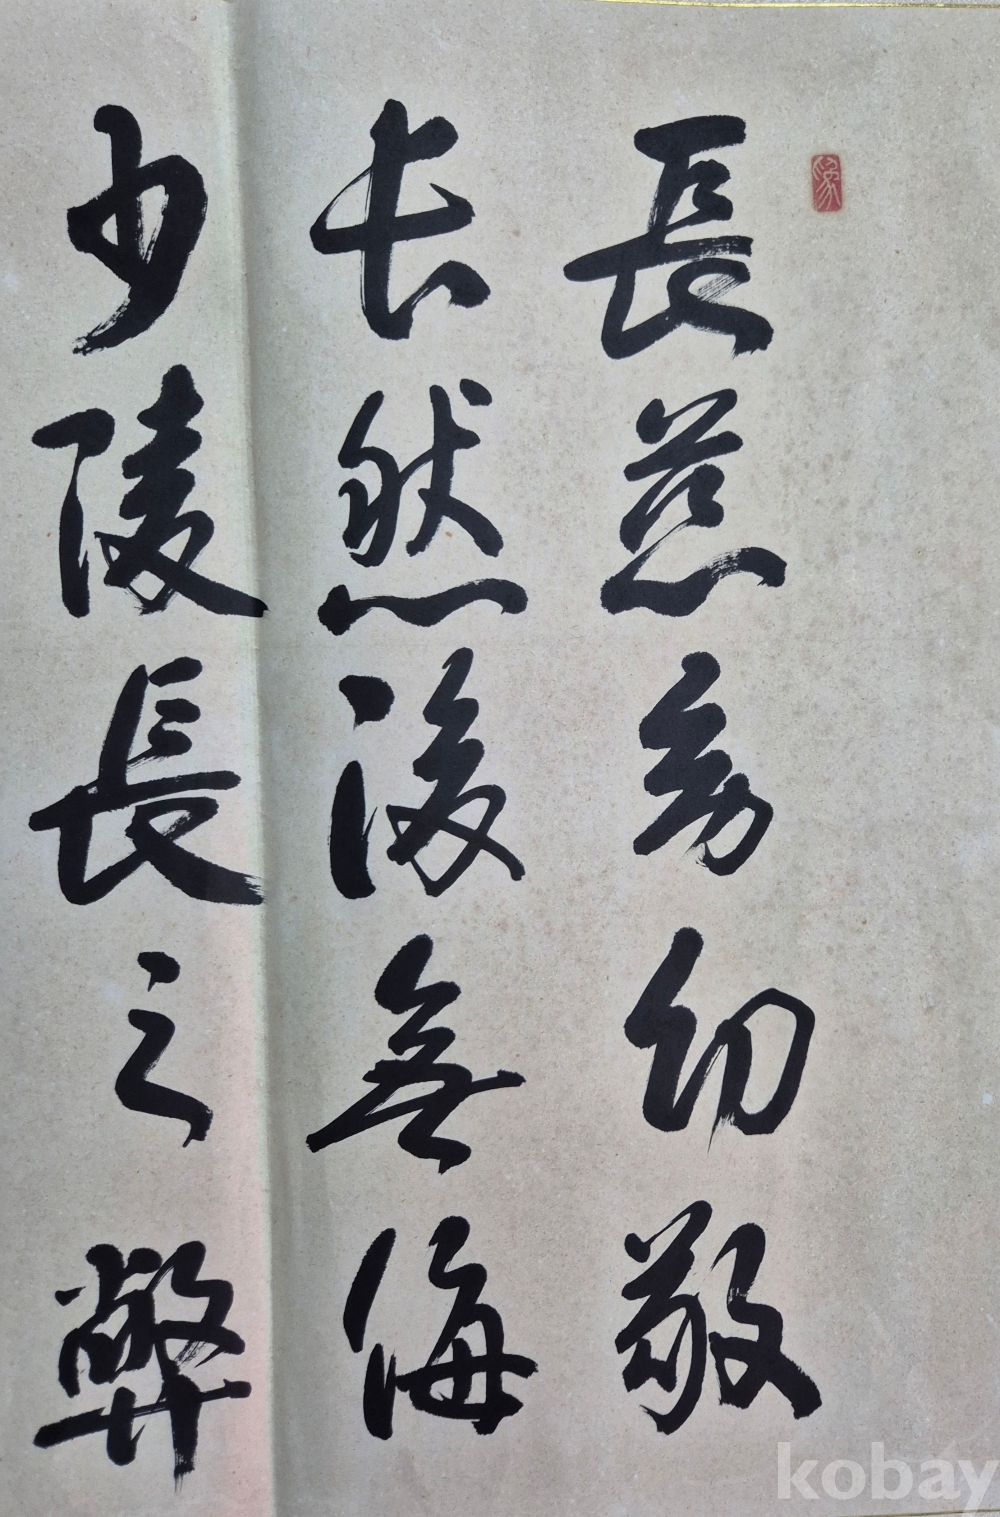 長慈幼幼敬
長然後無侮
少陵長之弊
kobay